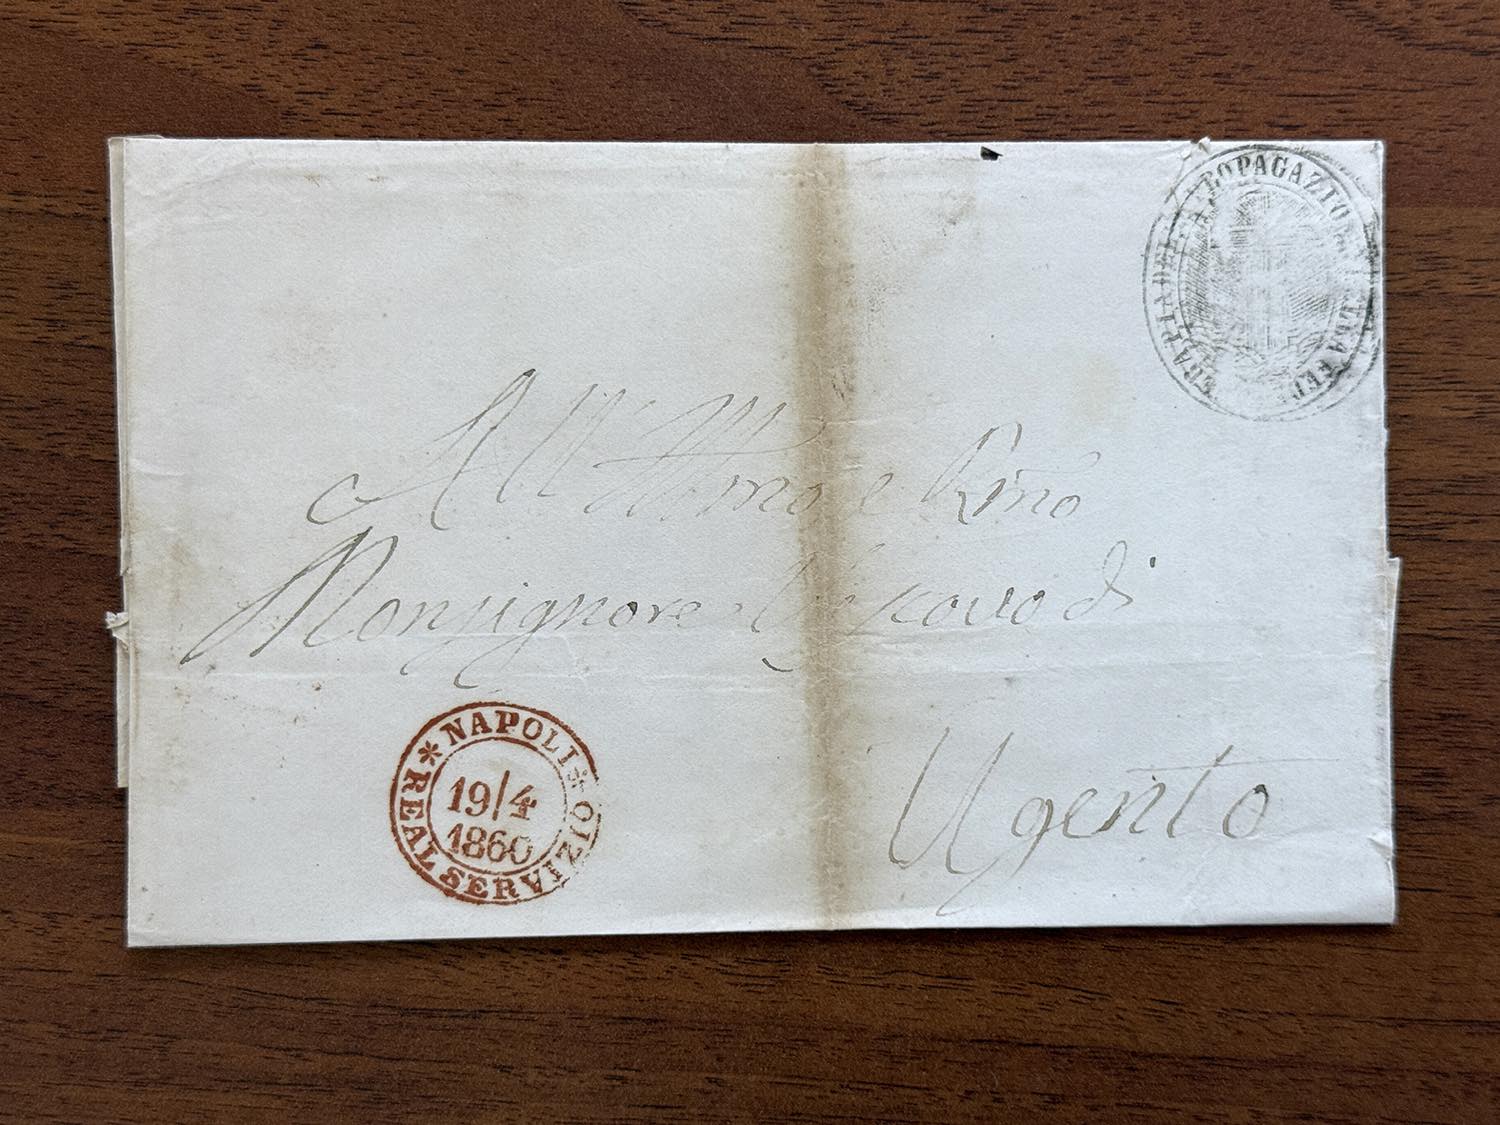 PROPAGAZIONE DELLA FEDE
All' Illmo e Rmo
Monsignore Vescovo di
Ugento
* NAPOLI *
19/4
1860
REAL SERVIZIO